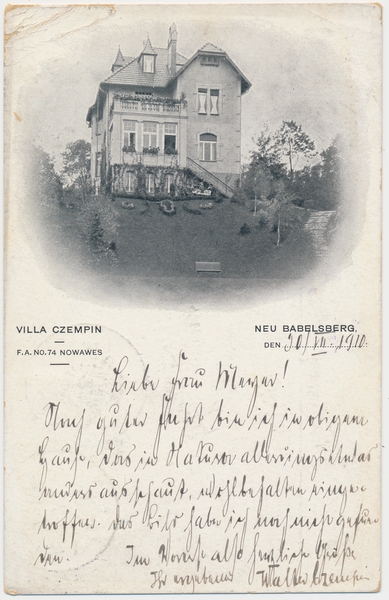 VILLA CZEMPIN
F.A. NO. 74 NOWAWES
NEU BABELSBERG,
DEN 30/VII. 1910.
Liebe Frau Meyer!
Nach guter Fahrt bin ich in obigem
Hause, das in Natura allerdings etwas
anders ausschaut, wohlbehalten einge-
troffen. Das Bild habe ich noch nicht gefun-
den. Im Voraus also herzliche Grüße
Ihr ergebener Walter Czempin